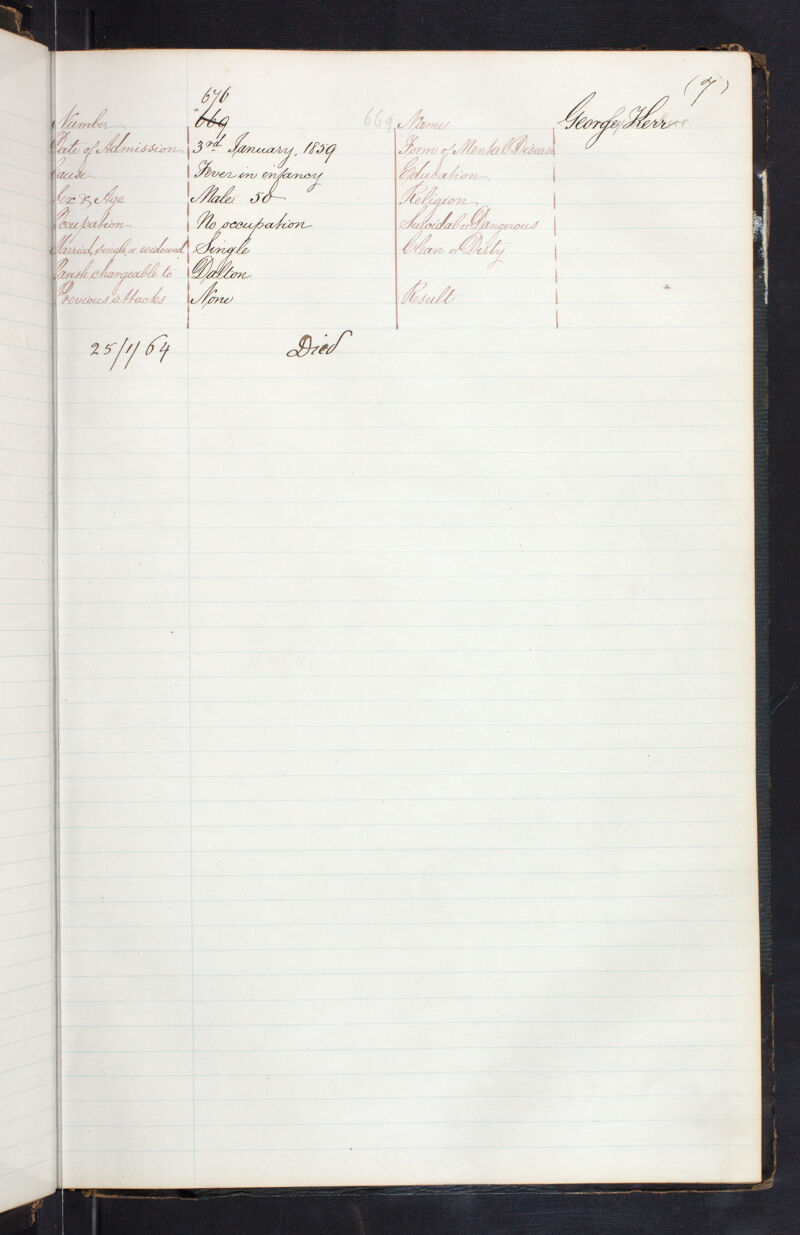 (7)
676
Number 669 669 Name George Kerr
Date of Admission 3rd January, 1859 Form of Mental Disease
Cause Fever in infancy Education
Sex & Age Male 50 Religion
Occupation No occupation Suicidal or Dangerous
Married, single, or widowed Single Clean or Dirty
Parish chargeable to Dalton
Previous attacks None Result
25/1/64 Died